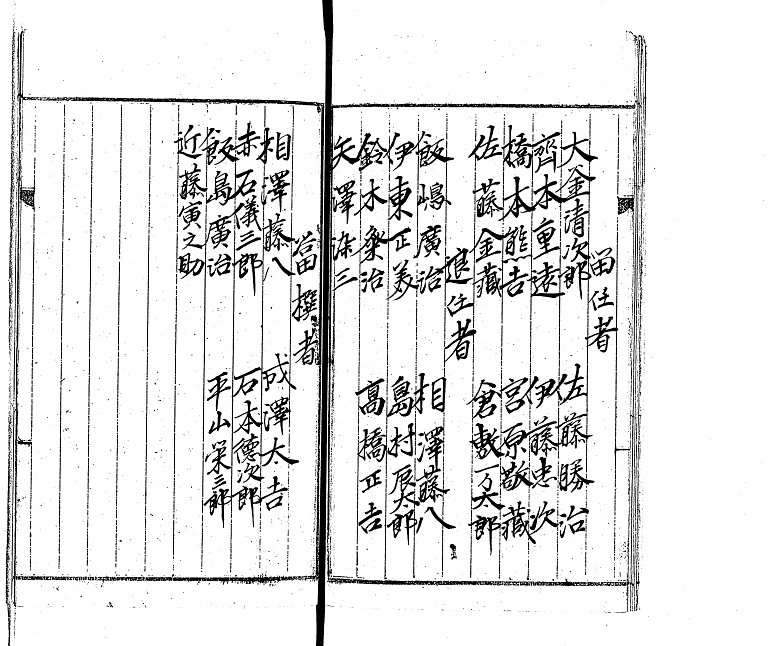 留任者
大釜清次郎 佐藤勝治
齊木重遠 伊藤忠次
橋本熊吉 宮原敬藏
佐藤金藏 倉敷万太郎
退任者
飯嶋廣治 相澤藤八
伊東正美 島村辰太郎
鈴木粂治 高橋正吉
矢澤染三
當撰者
相澤藤八 成澤太吉
赤石儀三郎 石本德次郎
飯島廣治 平山栄三郎
近藤寅之助